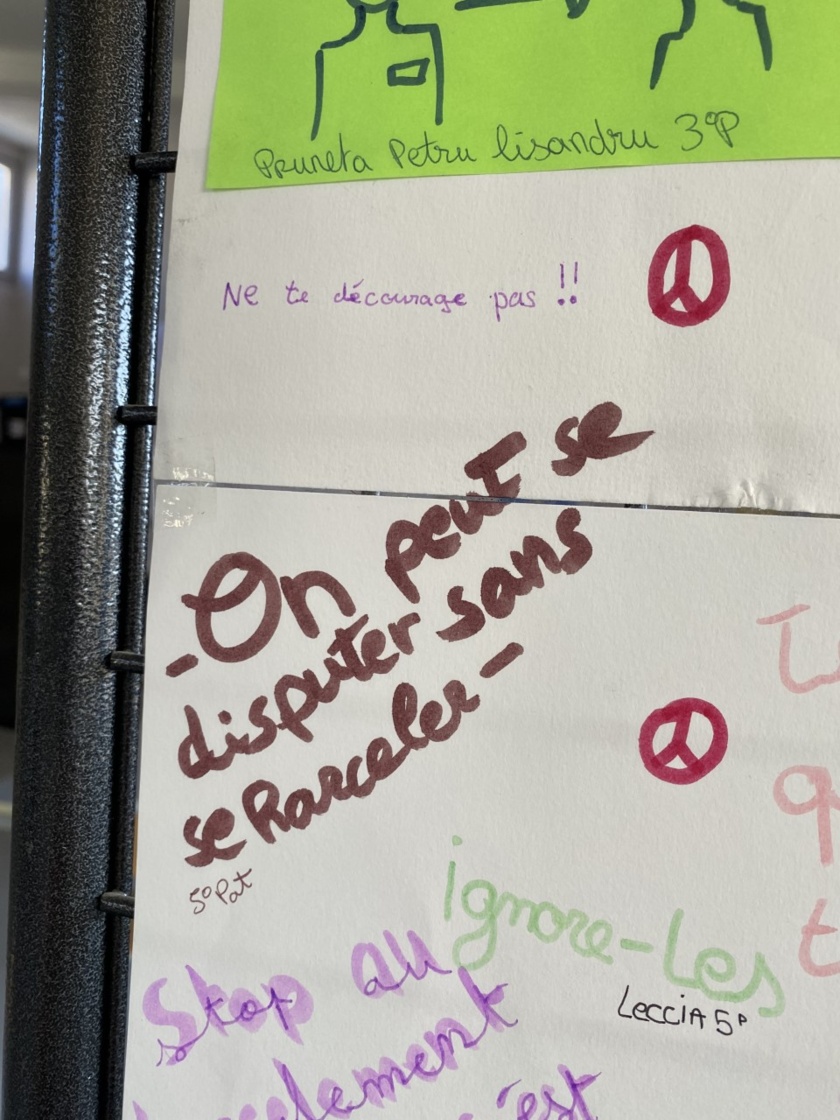 Pruneta Petru lisandru 3°P
Ne te décourage pas !!
-On peut se
disputer sans
se harceler-
5°Pat
ignore-les
Leccia 5P
Stop au